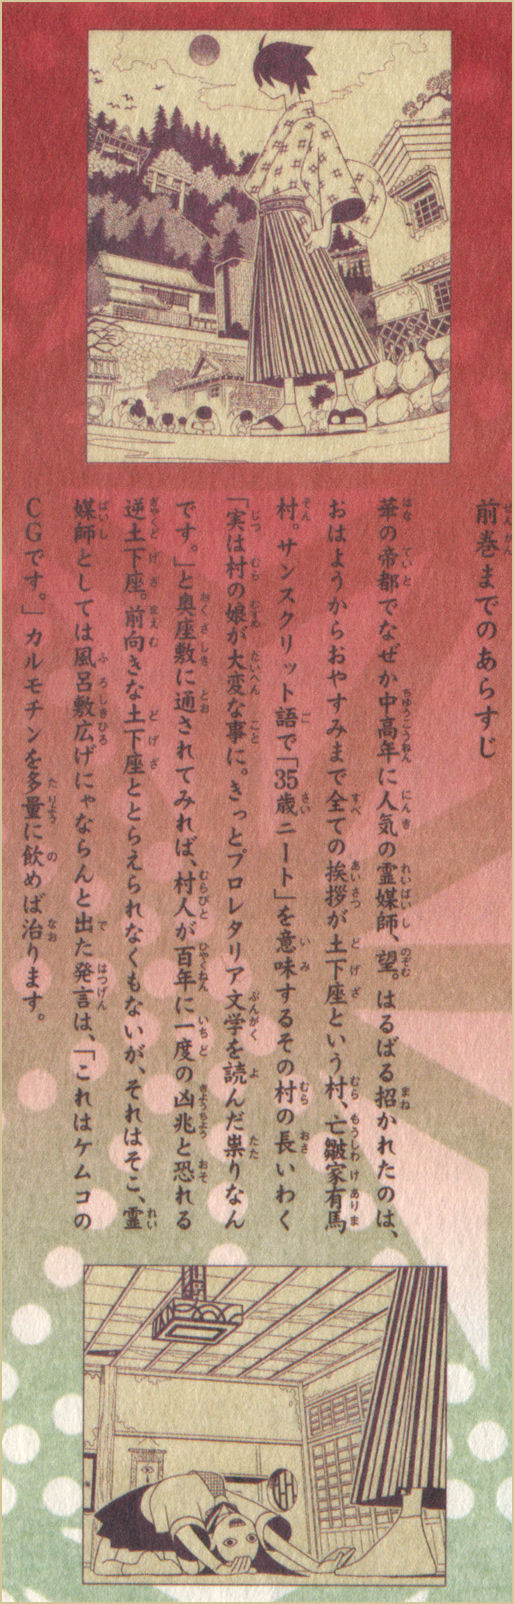 前巻までのあらすじ
華の帝都でなぜか中高年に人気の霊媒師、望。はるばる招かれたのは、
おはようからおやすみまで全ての挨拶が土下座という村、亡皺家有馬
村。サンスクリット語で「35歳ニート」を意味するその村の長いわく
「実は村の娘が大変な事に。きっとプロレタリア文学を読んだ祟りなん
です。」と奥座敷に通されてみれば、村人が百年に一度の凶兆と恐れる
逆土下座。前向きな土下座ととらえられなくもないが、それはそこ、霊
媒師としては風呂敷広げにゃならんと出た発言は、「これはケムコの
CGです。」カルモチンを多量に飲めば治ります。